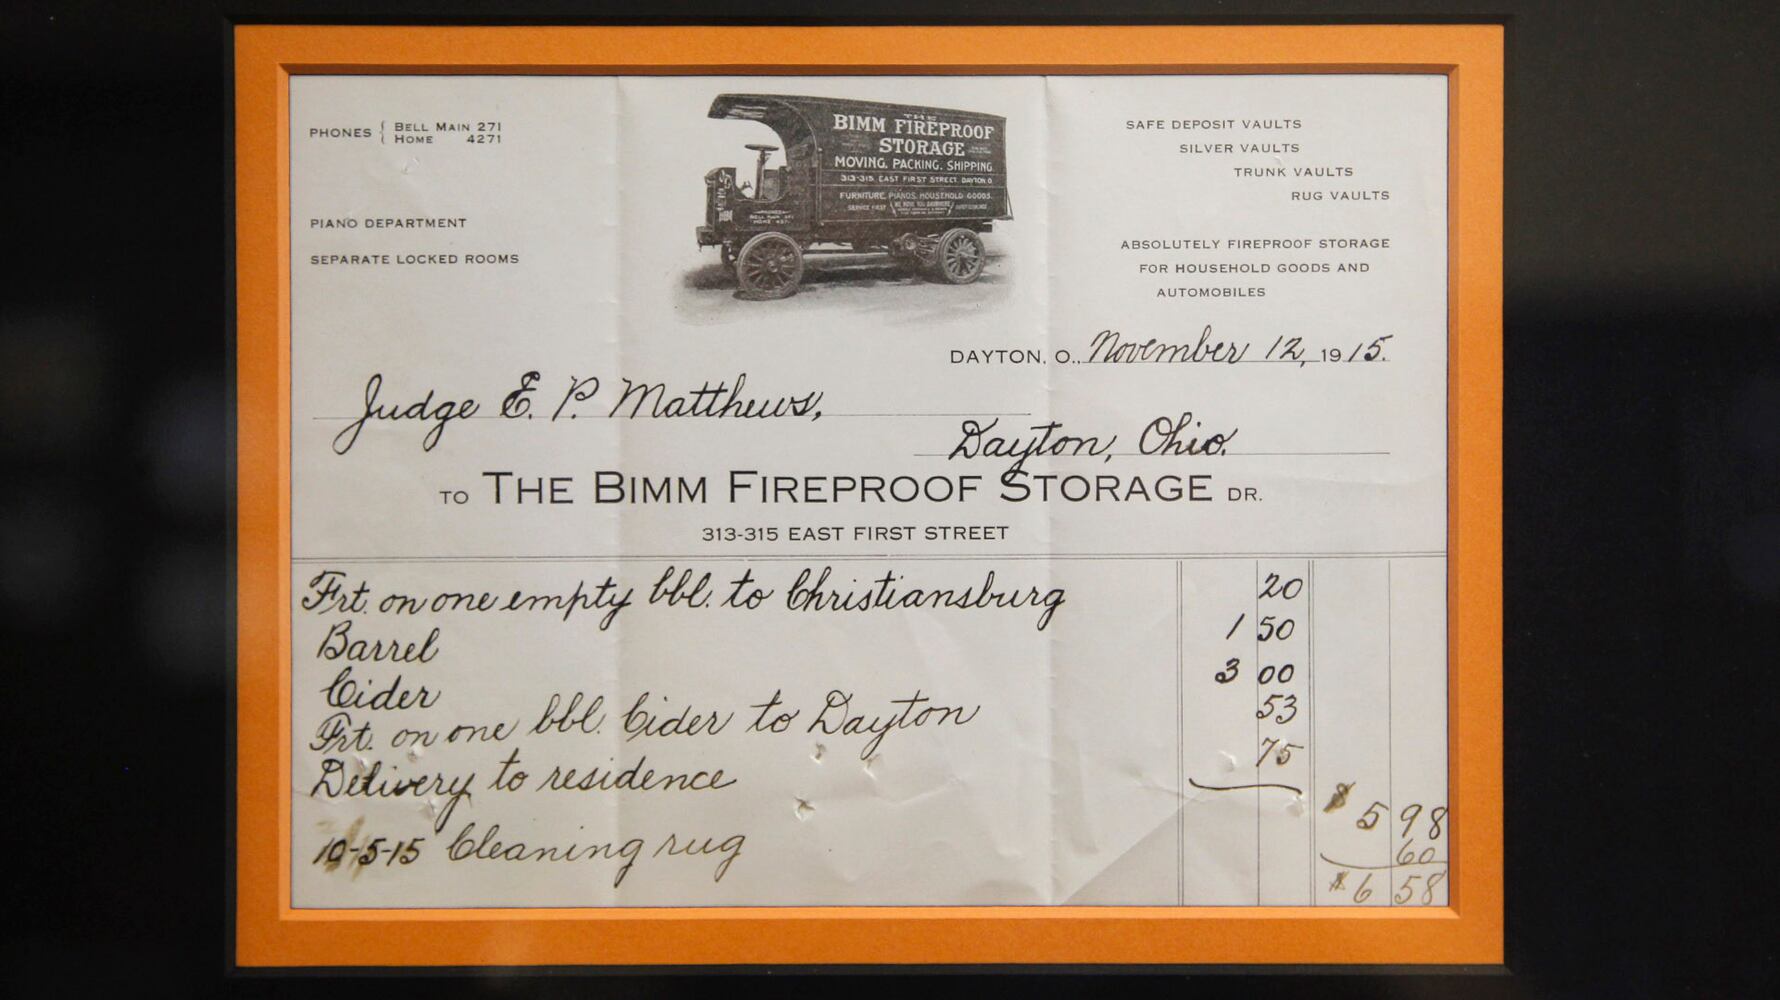 PHONES { BELL MAIN 271
HOME 4271
PIANO DEPARTMENT
SEPARATE LOCKED ROOMS
THE
BIMM FIREPROOF
STORAGE
MOVING, PACKING, SHIPPING
313-315 EAST FIRST STREET, DAYTON, O.
FURNITURE, PIANOS, HOUSEHOLD GOODS.
SERVICE FIRST
SAFE DEPOSIT VAULTS
SILVER VAULTS
TRUNK VAULTS
RUG VAULTS
ABSOLUTELY FIREPROOF STORAGE
FOR HOUSEHOLD GOODS AND
AUTOMOBILES
DAYTON, O., November 12, 1915.
Judge E. P. Matthews,
Dayton, Ohio.
TO THE BIMM FIREPROOF STORAGE DR.
313-315 EAST FIRST STREET
Frt. on one empty bbl. to Christiansburg 20
Barrel 1 50
Cider 3 00
Frt. on one bbl. Cider to Dayton 53
Delivery to residence 75
$ 5 98
10-5-15 Cleaning rug 60
$ 6 58